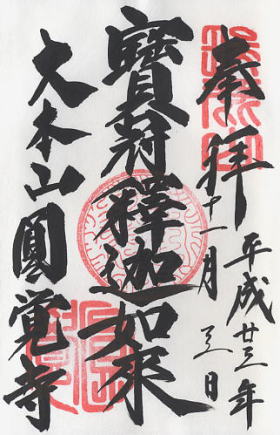 奉拝
平成廿三年
十一月三日
寶冠釋迦如來
大本山圓覚寺